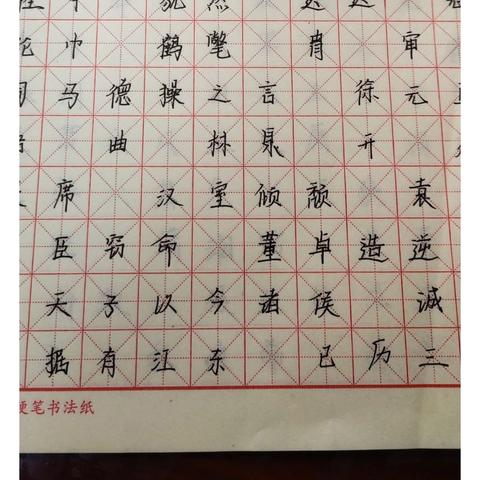 巾 鹤氅 胄 审
马 德操之言 徐元
曲 林泉 开
席 汉室倾颓 袁
臣窃命 董卓造逆
天子以令诸侯 诚
据有江东 已历三
硬笔书法纸